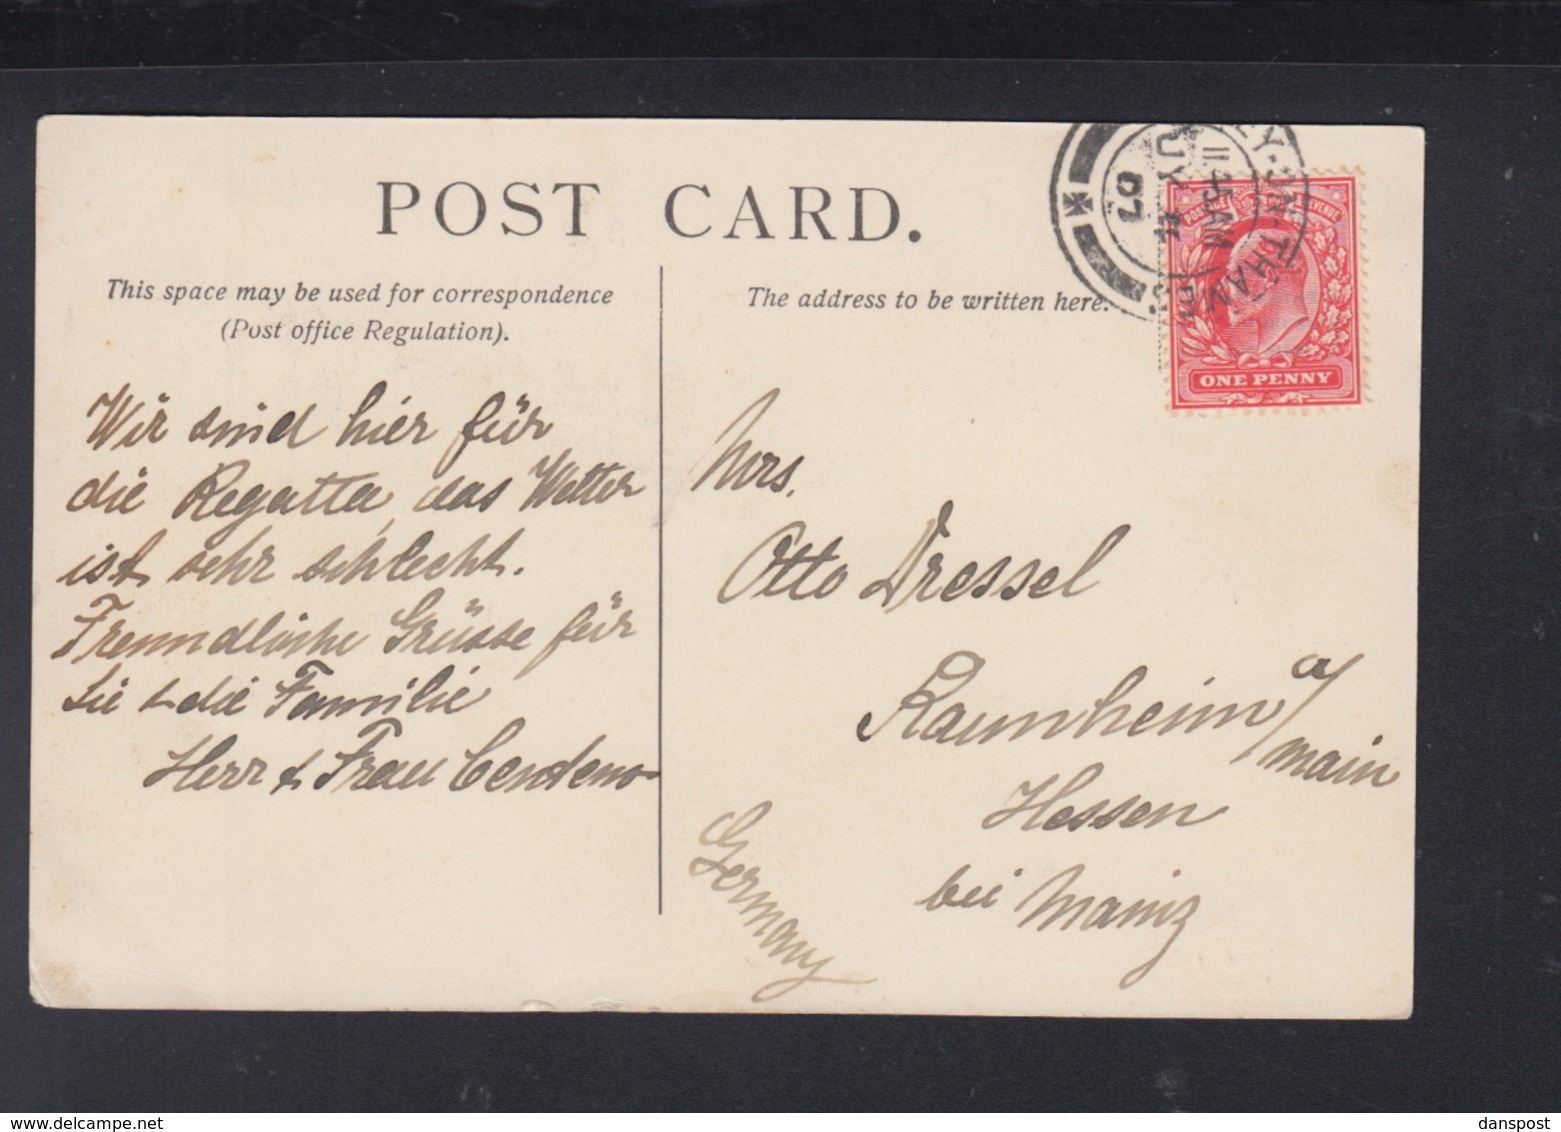 POST CARD.
This space may be used for correspondence
(Post office Regulation).
The address to be written here.
Wir sind hier für
die Regatta, das Wetter
ist sehr schlecht.
Freundliche Grüsse für
Sie & die Familie
Herr & Frau
Mrs.
Otto Dressel
Raunheim a/
main
Hessen
bei Mainz
Germany
EY-ON-THAM
11.45AM
JY
07
POSTAGE
REVENUE
ONE PENNY
danspost